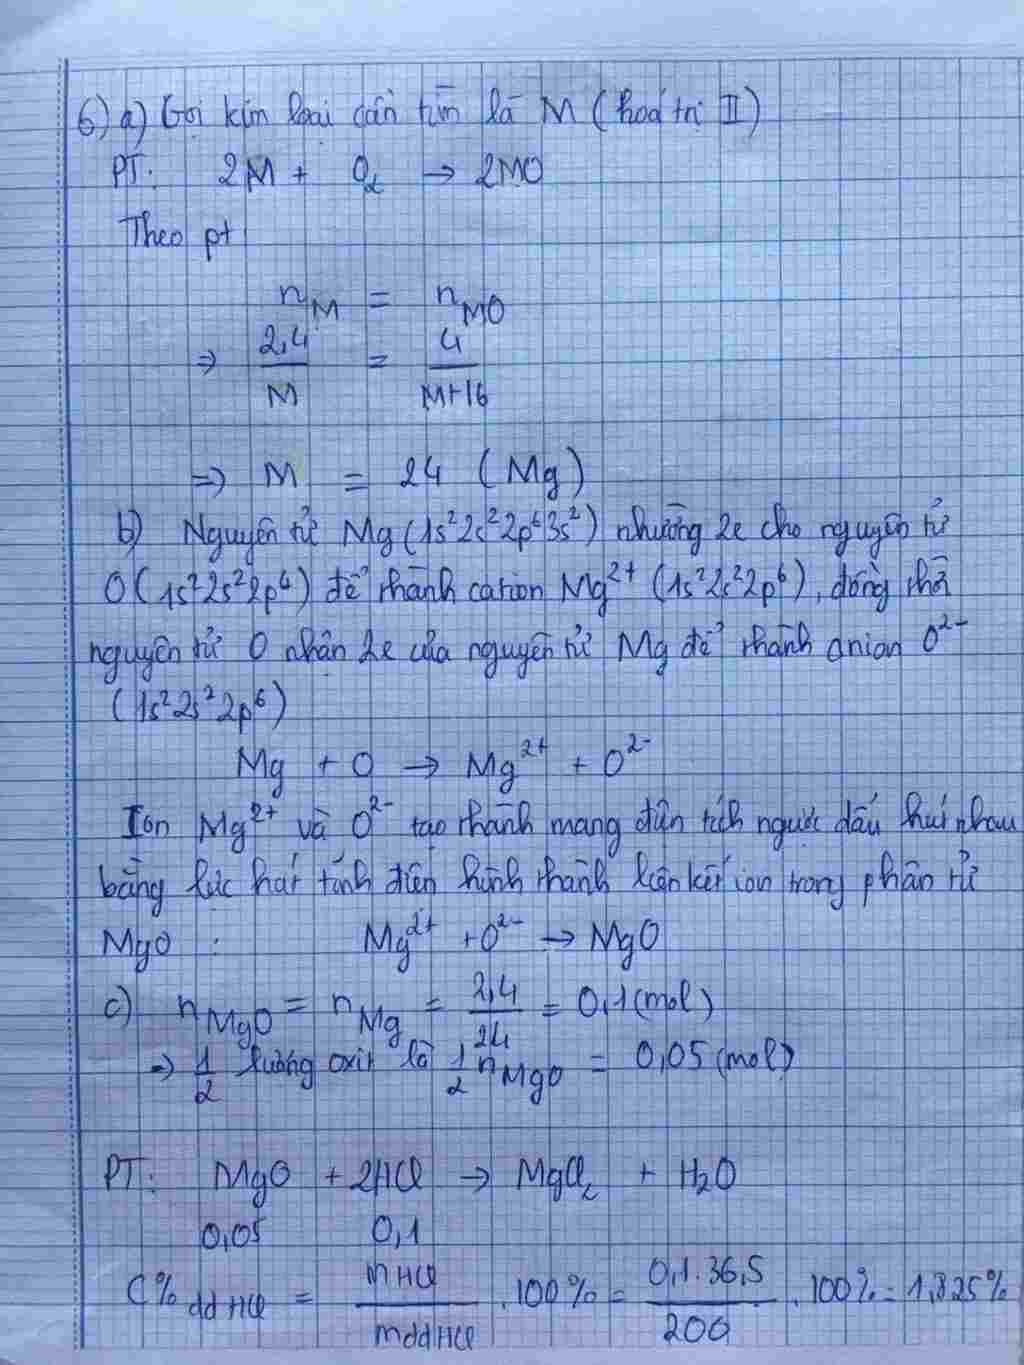 6) a) Gọi kim loại cần tìm là M (hoá trị II)
PT: 2M + O₂ → 2MO
Theo pt
n_M = n_MO
⇒ 2,4/M = 4/(M+16)
⇒ M = 24 (Mg)
b) Nguyên tử Mg (1s²2s²2p⁶3s²) nhường 2e cho nguyên tử
O (1s²2s²2p⁴) để thành cation Mg²⁺ (1s²2s²2p⁶), đồng thời
nguyên tử O nhận 2e của nguyên tử Mg để thành anion O²⁻
(1s²2s²2p⁶)
Mg + O → Mg²⁺ + O²⁻
Ion Mg²⁺ và O²⁻ tạo thành mang điện tích ngược dấu hút nhau
bằng lực hút tĩnh điện hình thành liên kết ion trong phân tử
MgO : Mg²⁺ + O²⁻ → MgO
c) n_MgO = n_Mg = 2,4/24 = 0,1 (mol)
⇒ 1/2 lượng oxit là 1/2 n_MgO = 0,05 (mol)
PT: MgO + 2HCl → MgCl₂ + H₂O
0,05 0,1
C% dd HCl = mHCl/mddHCl . 100% = 0,1.36,5/200 . 100% = 1,825%